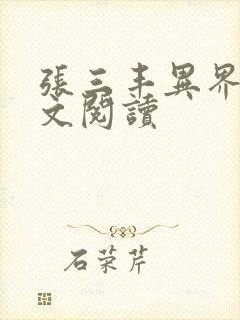 張三丰異界
文閱讀
石荣芹